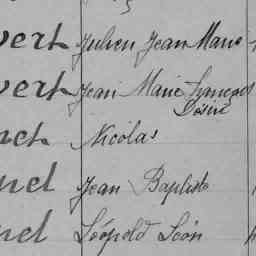 vert Julien Jean Marie
vert Jean Marie François
Désiré
net Nicolas
nel Jean Baptiste
nel Léopold Léon